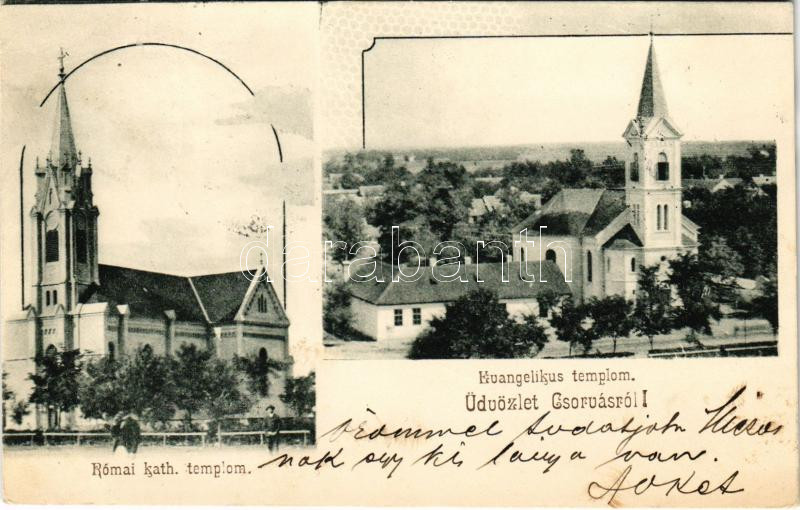 Római kath. templom.
Evangelikus templom.
Üdvözlet Csorvásról!
örömmel tudatjuk
nak egy kis lánya van.
darabanth